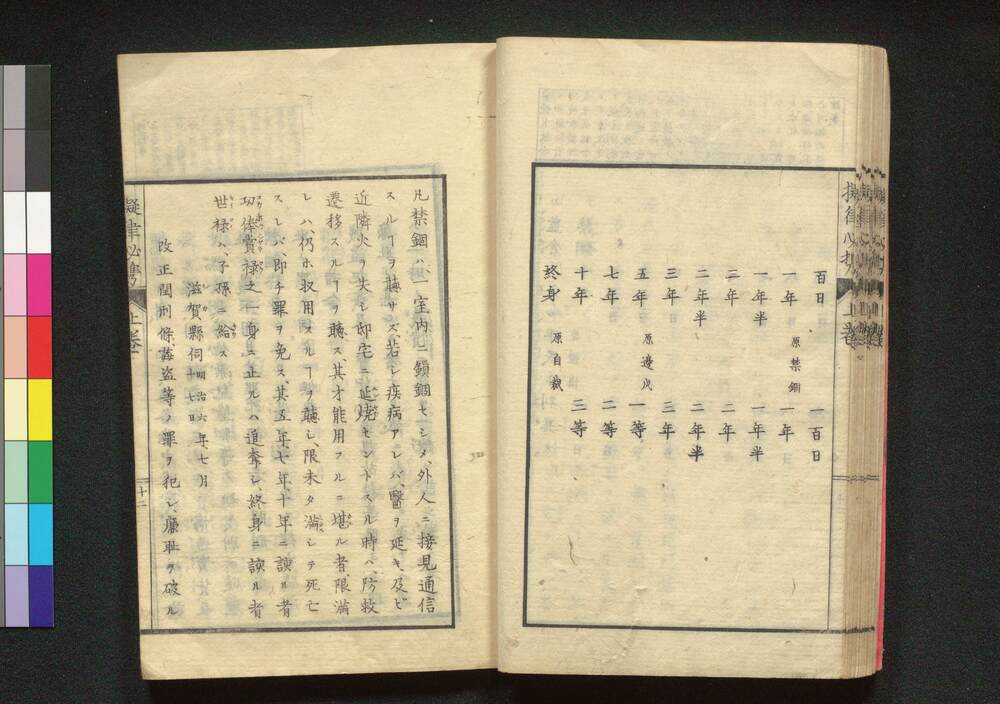 擬律必携 上巻
百日 一百日
一年 原禁錮 一年
一年半 一年半
二年 二年
二年半 二年半
三年 三年
五年 原邊戍 一等
七年 二等
十年 三等
終身 原自裁
凡禁錮ハ、一室内ニ鎖錮セシメ、外人ニ接見通信
スルヿヲ聽サズ若シ疾病アレバ、醫ヲ延キ、及ビ
近隣火ヲ失シ邸宅ニ延焼セントスル時ハ、防救
遷移スルヿヲ聽ス、其才能用フルニ堪ル者、限滿
レハ、仍ホ収用スルヿヲ聽シ、限未タ滿シテ死亡
スレバ、即チ罪ヲ免ス、其五年七年十年ニ該ル者
功俸賞禄之一身ニ止ルハ追奪シ、終身ニ該ル者
世禄ハ、子孫ニ給ス
滋賀縣伺 明治六年七月十七日
改正閏刑條、姦盗等ノ罪ヲ犯シ、廉耻ヲ破ル
擬律必携 上巻 十二